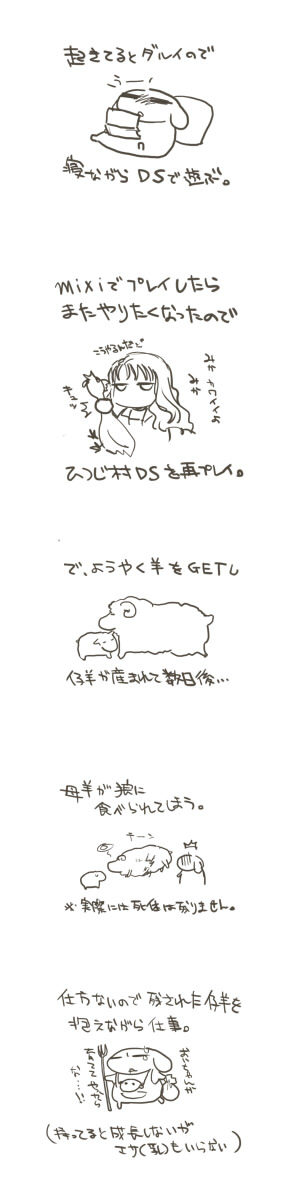 起きてるとダルイので
うー
寝ながらDSで遊ぶ。
mixiでプレイしたら
またやりたくなったので
こうやるんだど
ひつじ村DSを再プレイ。
で、ようやく羊をGETし
仔羊が産まれて数日後…
母羊が狼に
食べられてしまう。
チーン
※実際には死体は残りません。
仕方ないので残された仔羊を
抱えながら仕事。
おじちゃんが
育ててやるから
な…!!
(持ってると成長しないが
エサ(乳)もいらない)